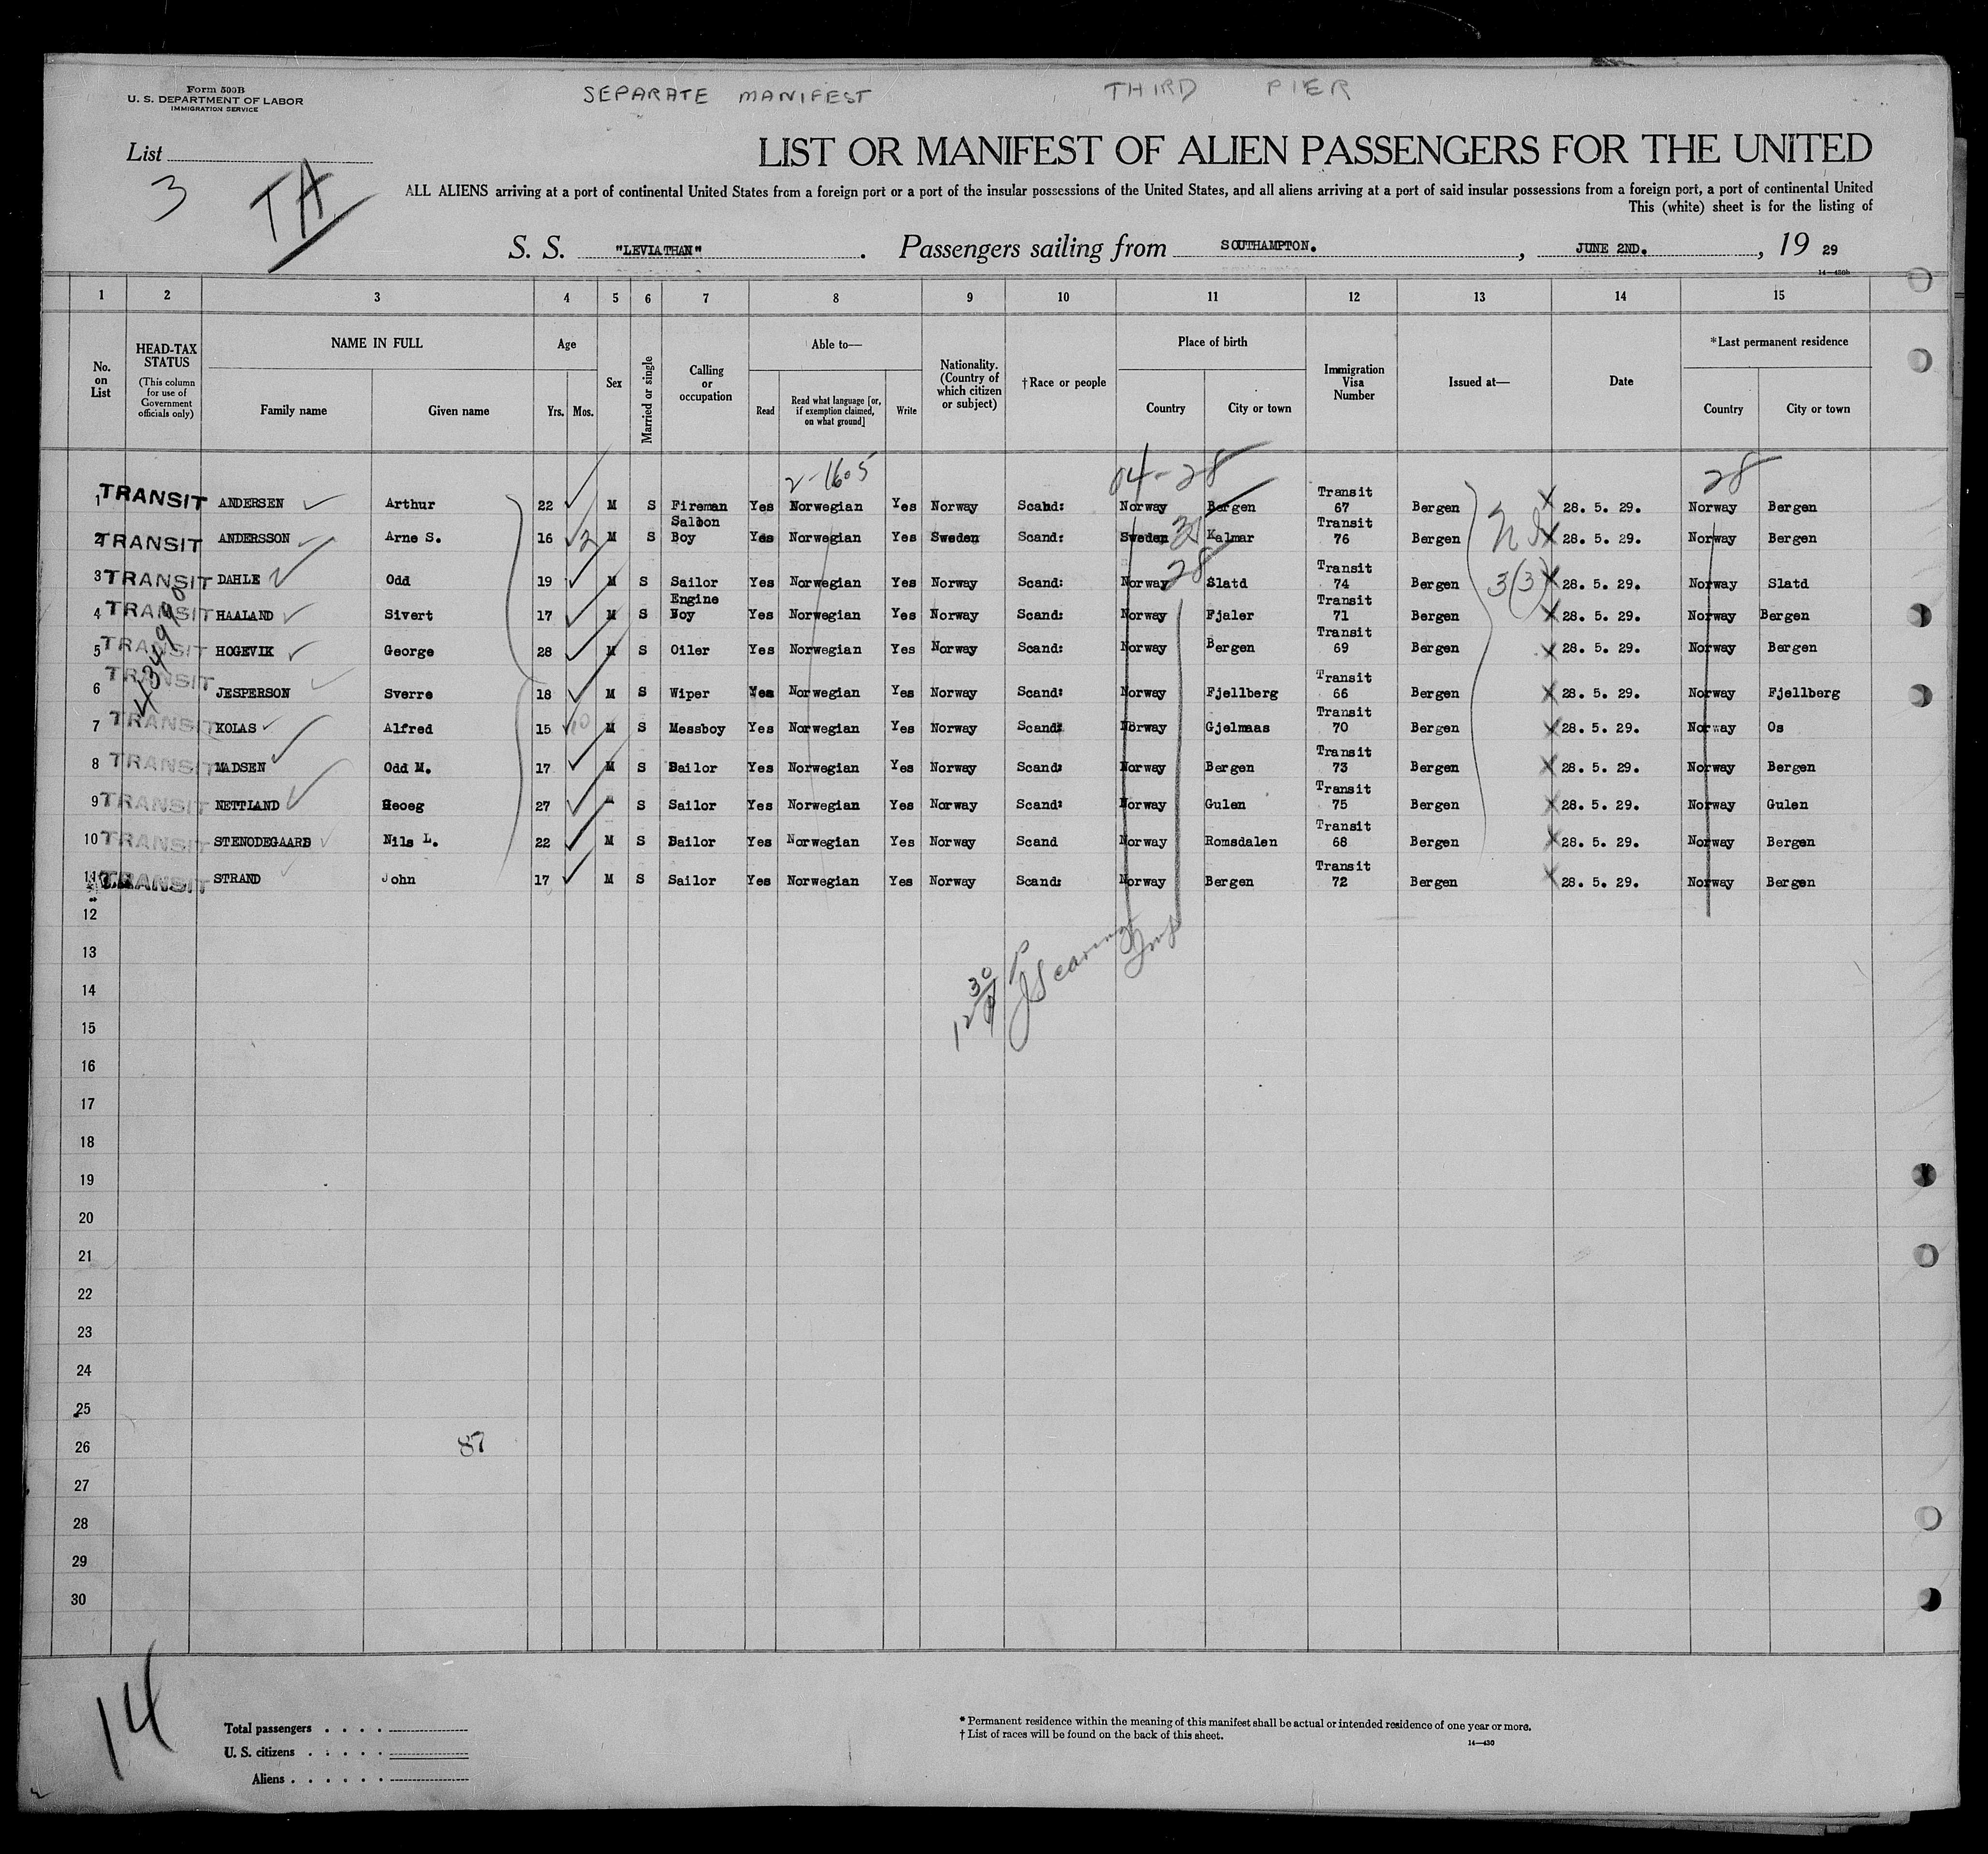 Form 500B
U. S. DEPARTMENT OF LABOR
IMMIGRATION SERVICE
SEPARATE MANIFEST THIRD PIER
List
3
TA
LIST OR MANIFEST OF ALIEN PASSENGERS FOR THE UNITED
ALL ALIENS arriving at a port of continental United States from a foreign port or a port of the insular possessions of the United States, and all aliens arriving at a port of said insular possessions from a foreign port, a port of continental United
This (white) sheet is for the listing of
S. S. "LEVIATHAN". Passengers sailing from SOUTHAMPTON. , JUNE 2ND. , 19 29
14—430b
1 2 3 4 5 6 7 8 9 10 11 12 13 14 15
No. on List
HEAD-TAX STATUS (This column for use of Government officials only)
NAME IN FULL Family name Given name
Age Yrs. Mos.
Sex
Married or single
Calling or occupation
Able to— Read Read what language [or, if exemption claimed, on what ground] Write
Nationality. (Country of which citizen or subject)
†Race or people
Place of birth Country City or town
Immigration Visa Number
Issued at—
Date
*Last permanent residence Country City or town
2-1605 04-28 28
1 TRANSIT ANDERSEN Arthur 22 M S Fireman Yes Norwegian Yes Norway Scand: Norway Bergen Transit 67 Bergen 28. 5. 29. Norway Bergen
2 TRANSIT ANDERSSON Arne S. 16 2 M S Saloon Boy Yes Norwegian Yes Sweden Scand: Sweden Kalmar Transit 76 Bergen 28. 5. 29. Norway Bergen
28
3 TRANSIT DAHLE Odd 19 M S Sailor Yes Norwegian Yes Norway Scand: Norway Slatd Transit 74 Bergen 3(3) 28. 5. 29. Norway Slatd
4 TRANSIT HAALAND Sivert 17 M S Engine Boy Yes Norwegian Yes Norway Scand: Norway Fjaler Transit 71 Bergen 28. 5. 29. Norway Bergen
5 TRANSIT HOGEVIK George 28 M S Oiler Yes Norwegian Yes Norway Scand: Norway Bergen Transit 69 Bergen 28. 5. 29. Norway Bergen
6 TRANSIT JESPERSON Sverre 18 M S Wiper Yes Norwegian Yes Norway Scand: Norway Fjellberg Transit 66 Bergen 28. 5. 29. Norway Fjellberg
7 TRANSIT KOLAS Alfred 15 10 M S Messboy Yes Norwegian Yes Norway Scand: Norway Gjelmaas Transit 70 Bergen 28. 5. 29. Norway Os
8 TRANSIT MADSEN Odd M. 17 M S Sailor Yes Norwegian Yes Norway Scand: Norway Bergen Transit 73 Bergen 28. 5. 29. Norway Bergen
9 TRANSIT NETTLAND Heoeg 27 M S Sailor Yes Norwegian Yes Norway Scand: Norway Gulen Transit 75 Bergen 28. 5. 29. Norway Gulen
10 TRANSIT STENODEGAARD Nils L. 22 M S Sailor Yes Norwegian Yes Norway Scand Norway Romsdalen Transit 68 Bergen 28. 5. 29. Norway Bergen
11 TRANSIT STRAND John 17 M S Sailor Yes Norwegian Yes Norway Scand: Norway Bergen Transit 72 Bergen 28. 5. 29. Norway Bergen
12
13
14
15
16
17
18
19
20
21
22
23
24
25
26 87
27
28
29
30
14
Total passengers . . . .
U. S. citizens . . . . .
Aliens . . . . . .
* Permanent residence within the meaning of this manifest shall be actual or intended residence of one year or more.
† List of races will be found on the back of this sheet.
14—430